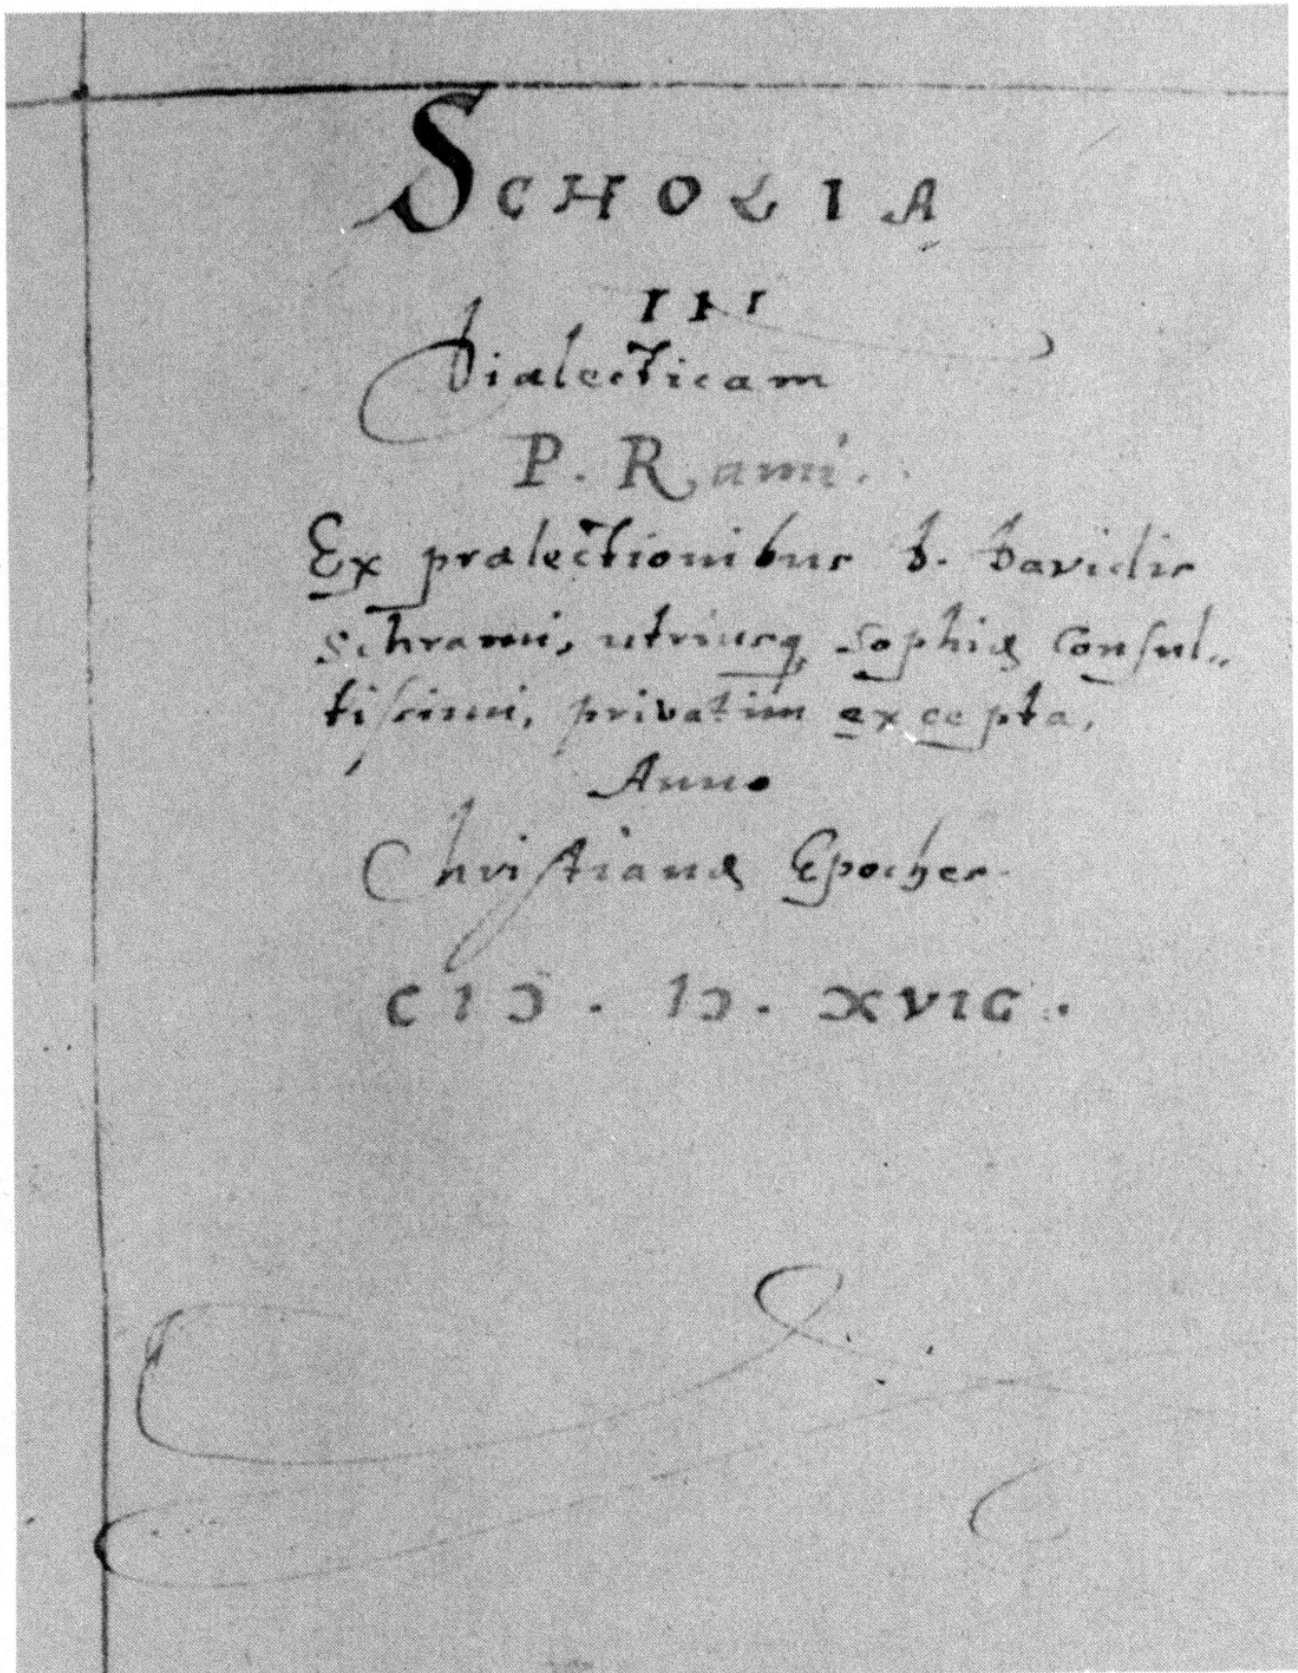 SCHOLIA
IN
Dialecticam
P. Rami.
Ex prælectionibus D. Davidis
Schrami, utriusq sophiæ Consul„
tiſsimi, privatim excepta,
Anno
Chriſtianæ Epoches
CIↃ. IↃ. XVIC.